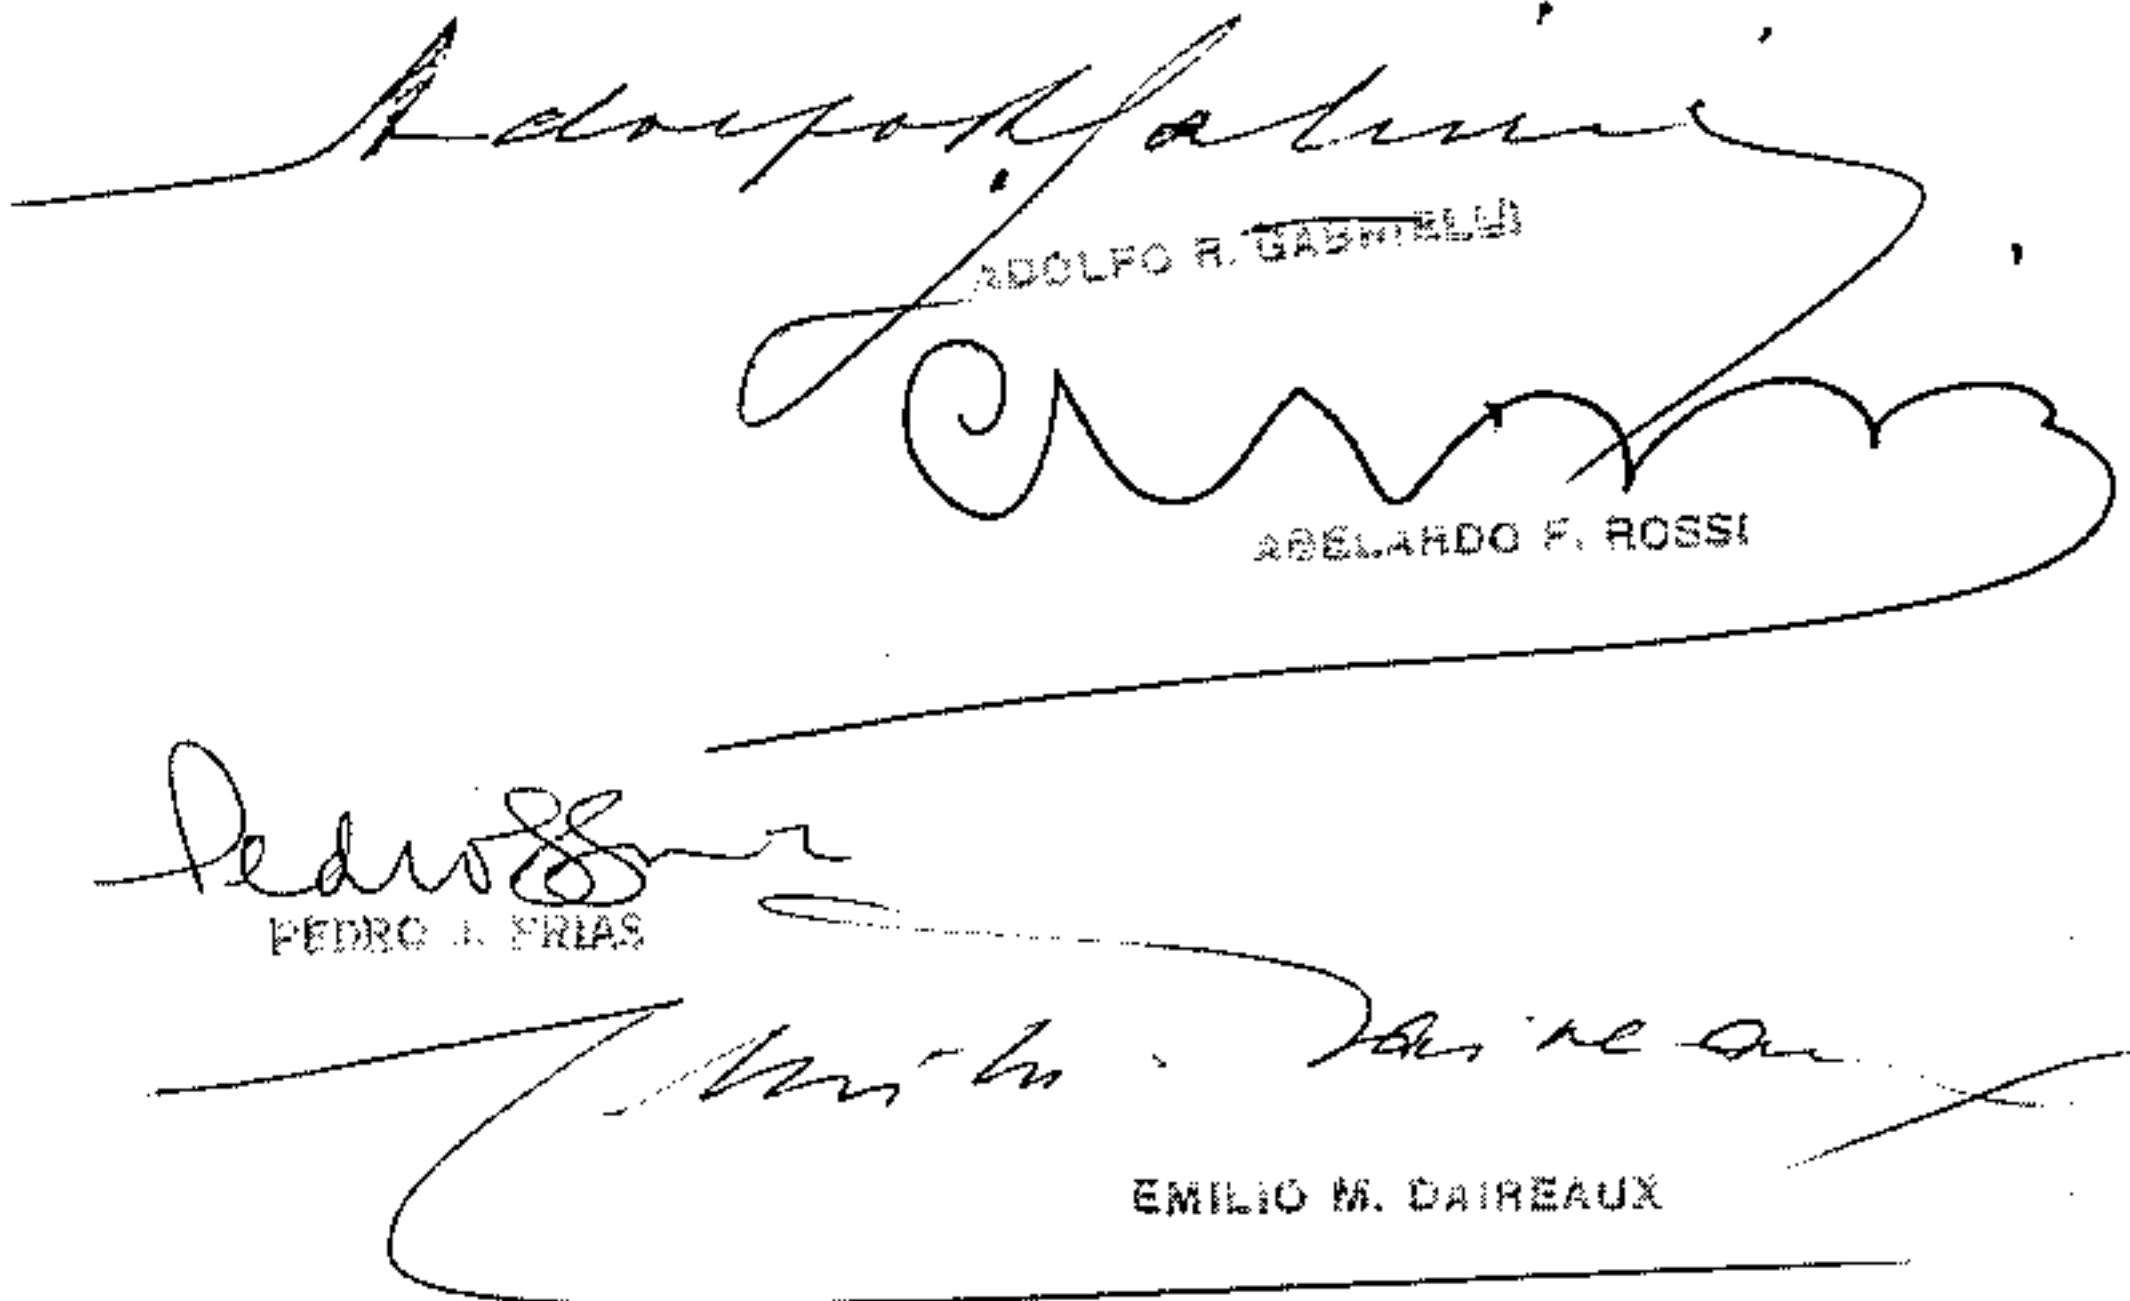 ADOLFO R. GABRIELLI
ABELARDO F. ROSSI
Pedro J. Frias
PEDRO J. FRIAS
EMILIO M. DAIREAUX